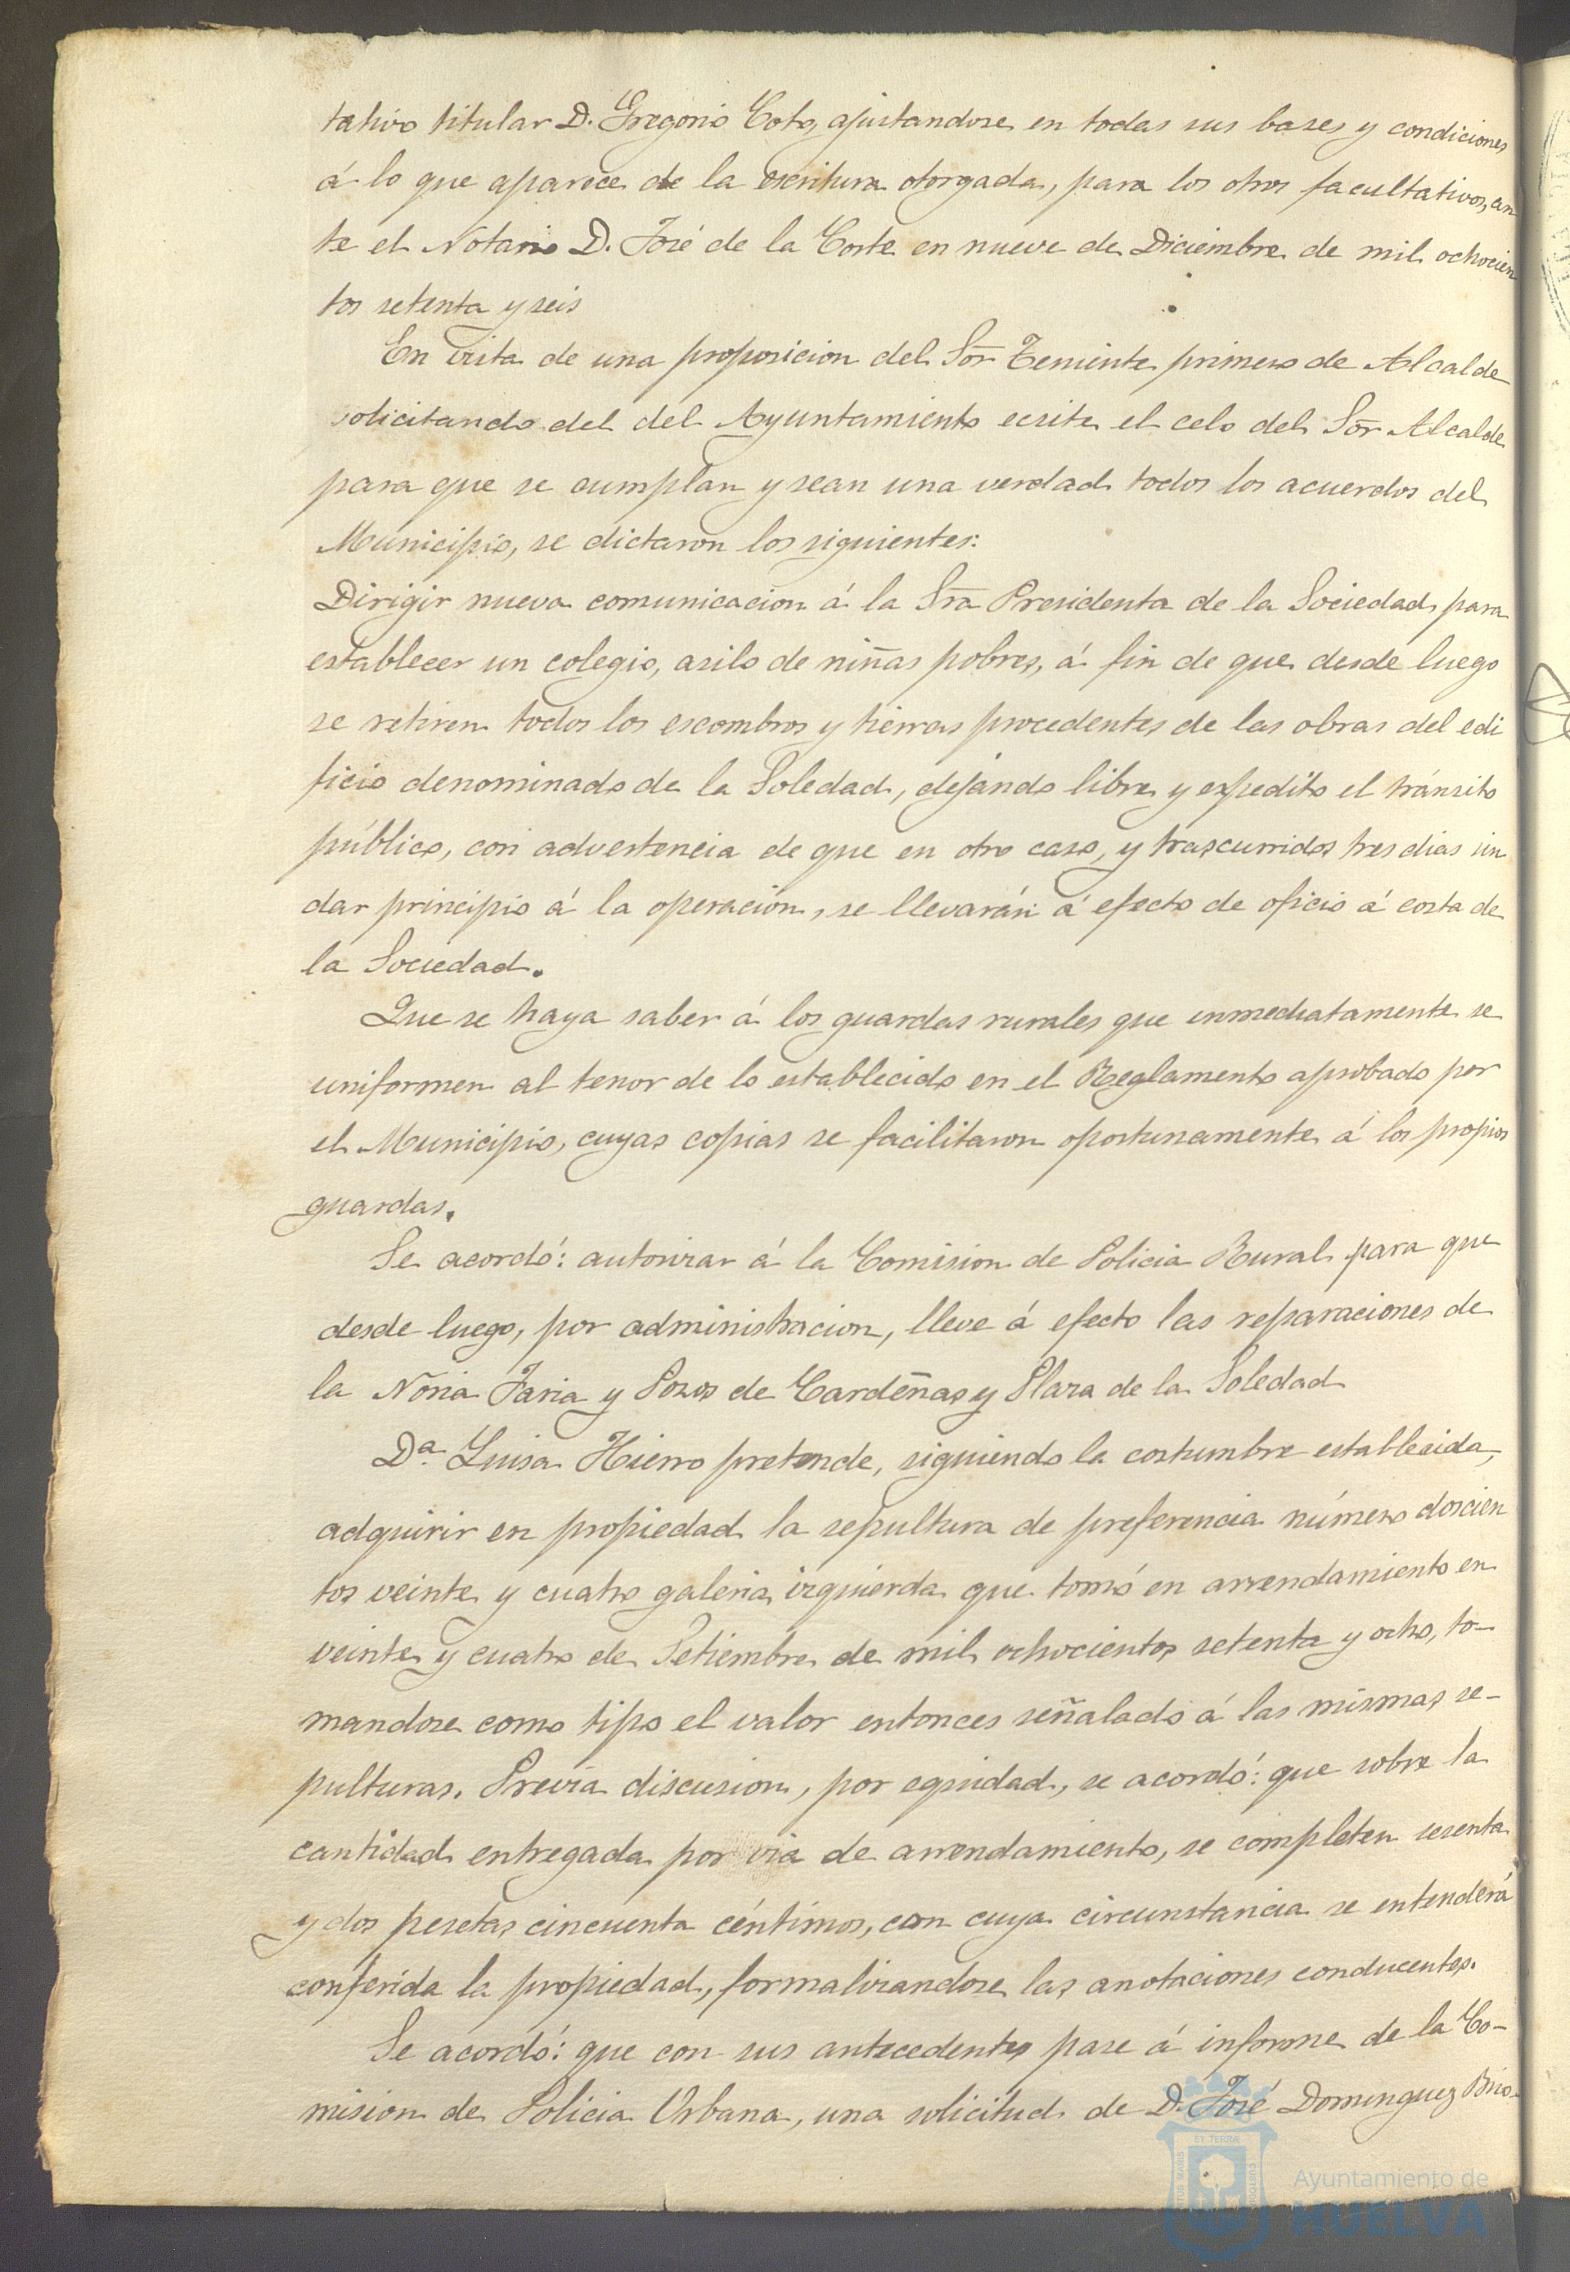 tativo titular D. Gregorio Coto, ajustandose en todas sus bases y condiciones
á lo que aparece de la escritura otorgada, para los otros facultativos, an
te el Notario D. José de la Corte en nueve de Diciembre de mil ochocien
tos setenta y seis
En vista de una proposicion del Sor Teniente primero de Alcalde
solicitando del del Ayuntamiento ecsite el celo del Sor Alcalde
para que se cumplan y sean una verdad todos los acuerdos del
Municipio, se dictaron los siguientes:
Dirigir nueva comunicacion á la Sra Presidenta de la Sociedad para
establecer un colegio, asilo de niñas pobres, á fin de que desde luego
se retiren todos los escombros y tierras procedentes de las obras del edi
ficio denominado de la Soledad, dejando libre y expedito el tránsito
público, con advertencia de que en otro caso, y trascurridos tres dias sin
dar principio á la operación, se llevarán á efecto de oficio á costa de
la Sociedad.
Que se haga saber á los guardas rurales que inmediatamente se
uniformen al tenor de lo establecido en el Reglamento aprobado por
el Municipio, cuyas copias se facilitaron oportunamente á los propios
guardas.
Se acordó: autorizar á la Comision de Policia Rural para que
desde luego, por administracion, lleve á efecto las reparaciones de
la Noria Jaria y Pozos de Cardeñas y Plaza de la Soledad
Da. Luisa Hierro pretende, siguiendo la costumbre establecida,
adquirir en propiedad la sepultura de preferencia número doscien
tos veinte y cuatro galeria izquierda que tomó en arrendamiento en
veinte y cuatro de Setiembre de mil ochocientos setenta y ocho, to-
mandose como tipo el valor entonces señalado á las mismas se-
pulturas. Previa discusion, por equidad, se acordó: que sobre la
cantidad entregada por via de arrendamiento, se completen sesenta
y dos pesetas cincuenta céntimos, con cuya circunstancia se entenderá
conferida la propiedad, formalizandose las anotaciones conducentes.
Se acordó: que con sus antecedentes pase á informe de la Co-
mision de Policia Urbana, una solicitud de D. José Dominguez Brio-
Ayuntamiento de
HUELVA